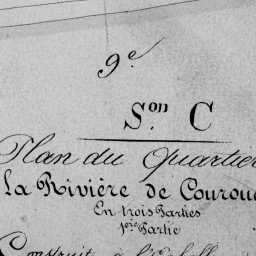 9e.
Son. C
Plan du Quartier
La Rivière de Couroue
En trois Parties
1ère Partie
Construit à l'Echelle